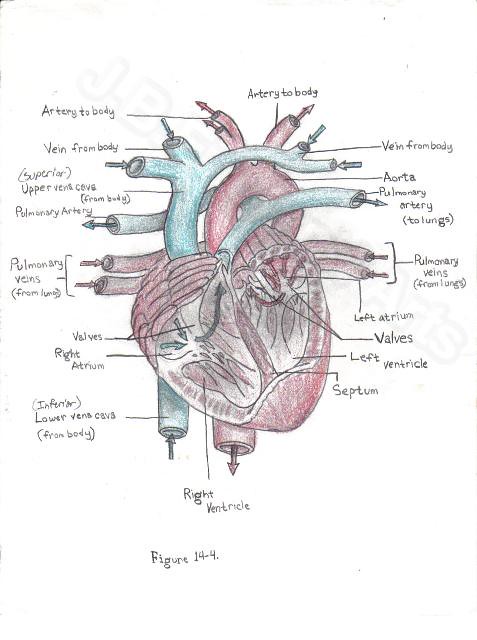 Artery to body
Artery to body
Vein from body
Vein from body
(Superior)
Upper vena cava
(from body)
Aorta
Pulmonary
artery
(to lungs)
Pulmonary Artery
Pulmonary
veins
(from lung)
Pulmonary
veins
(from lungs)
Left atrium
Valves
Valves
Right
Atrium
Left Ventricle
Septum
(Inferior)
Lower vena cava
(from body)
Right
Ventricle
Figure 14-4.